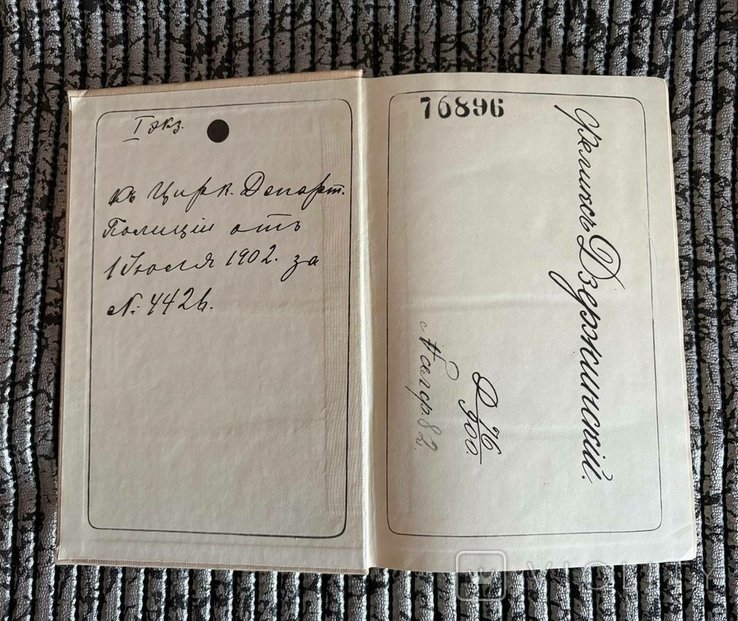 I экз.
къ Цирк. Департ.
Полиціи отъ
1 Іюля 1902. за
№ 4426.
76896
Феликсъ Дзержинскій.
Д 16/900.
82.
VIOLITY